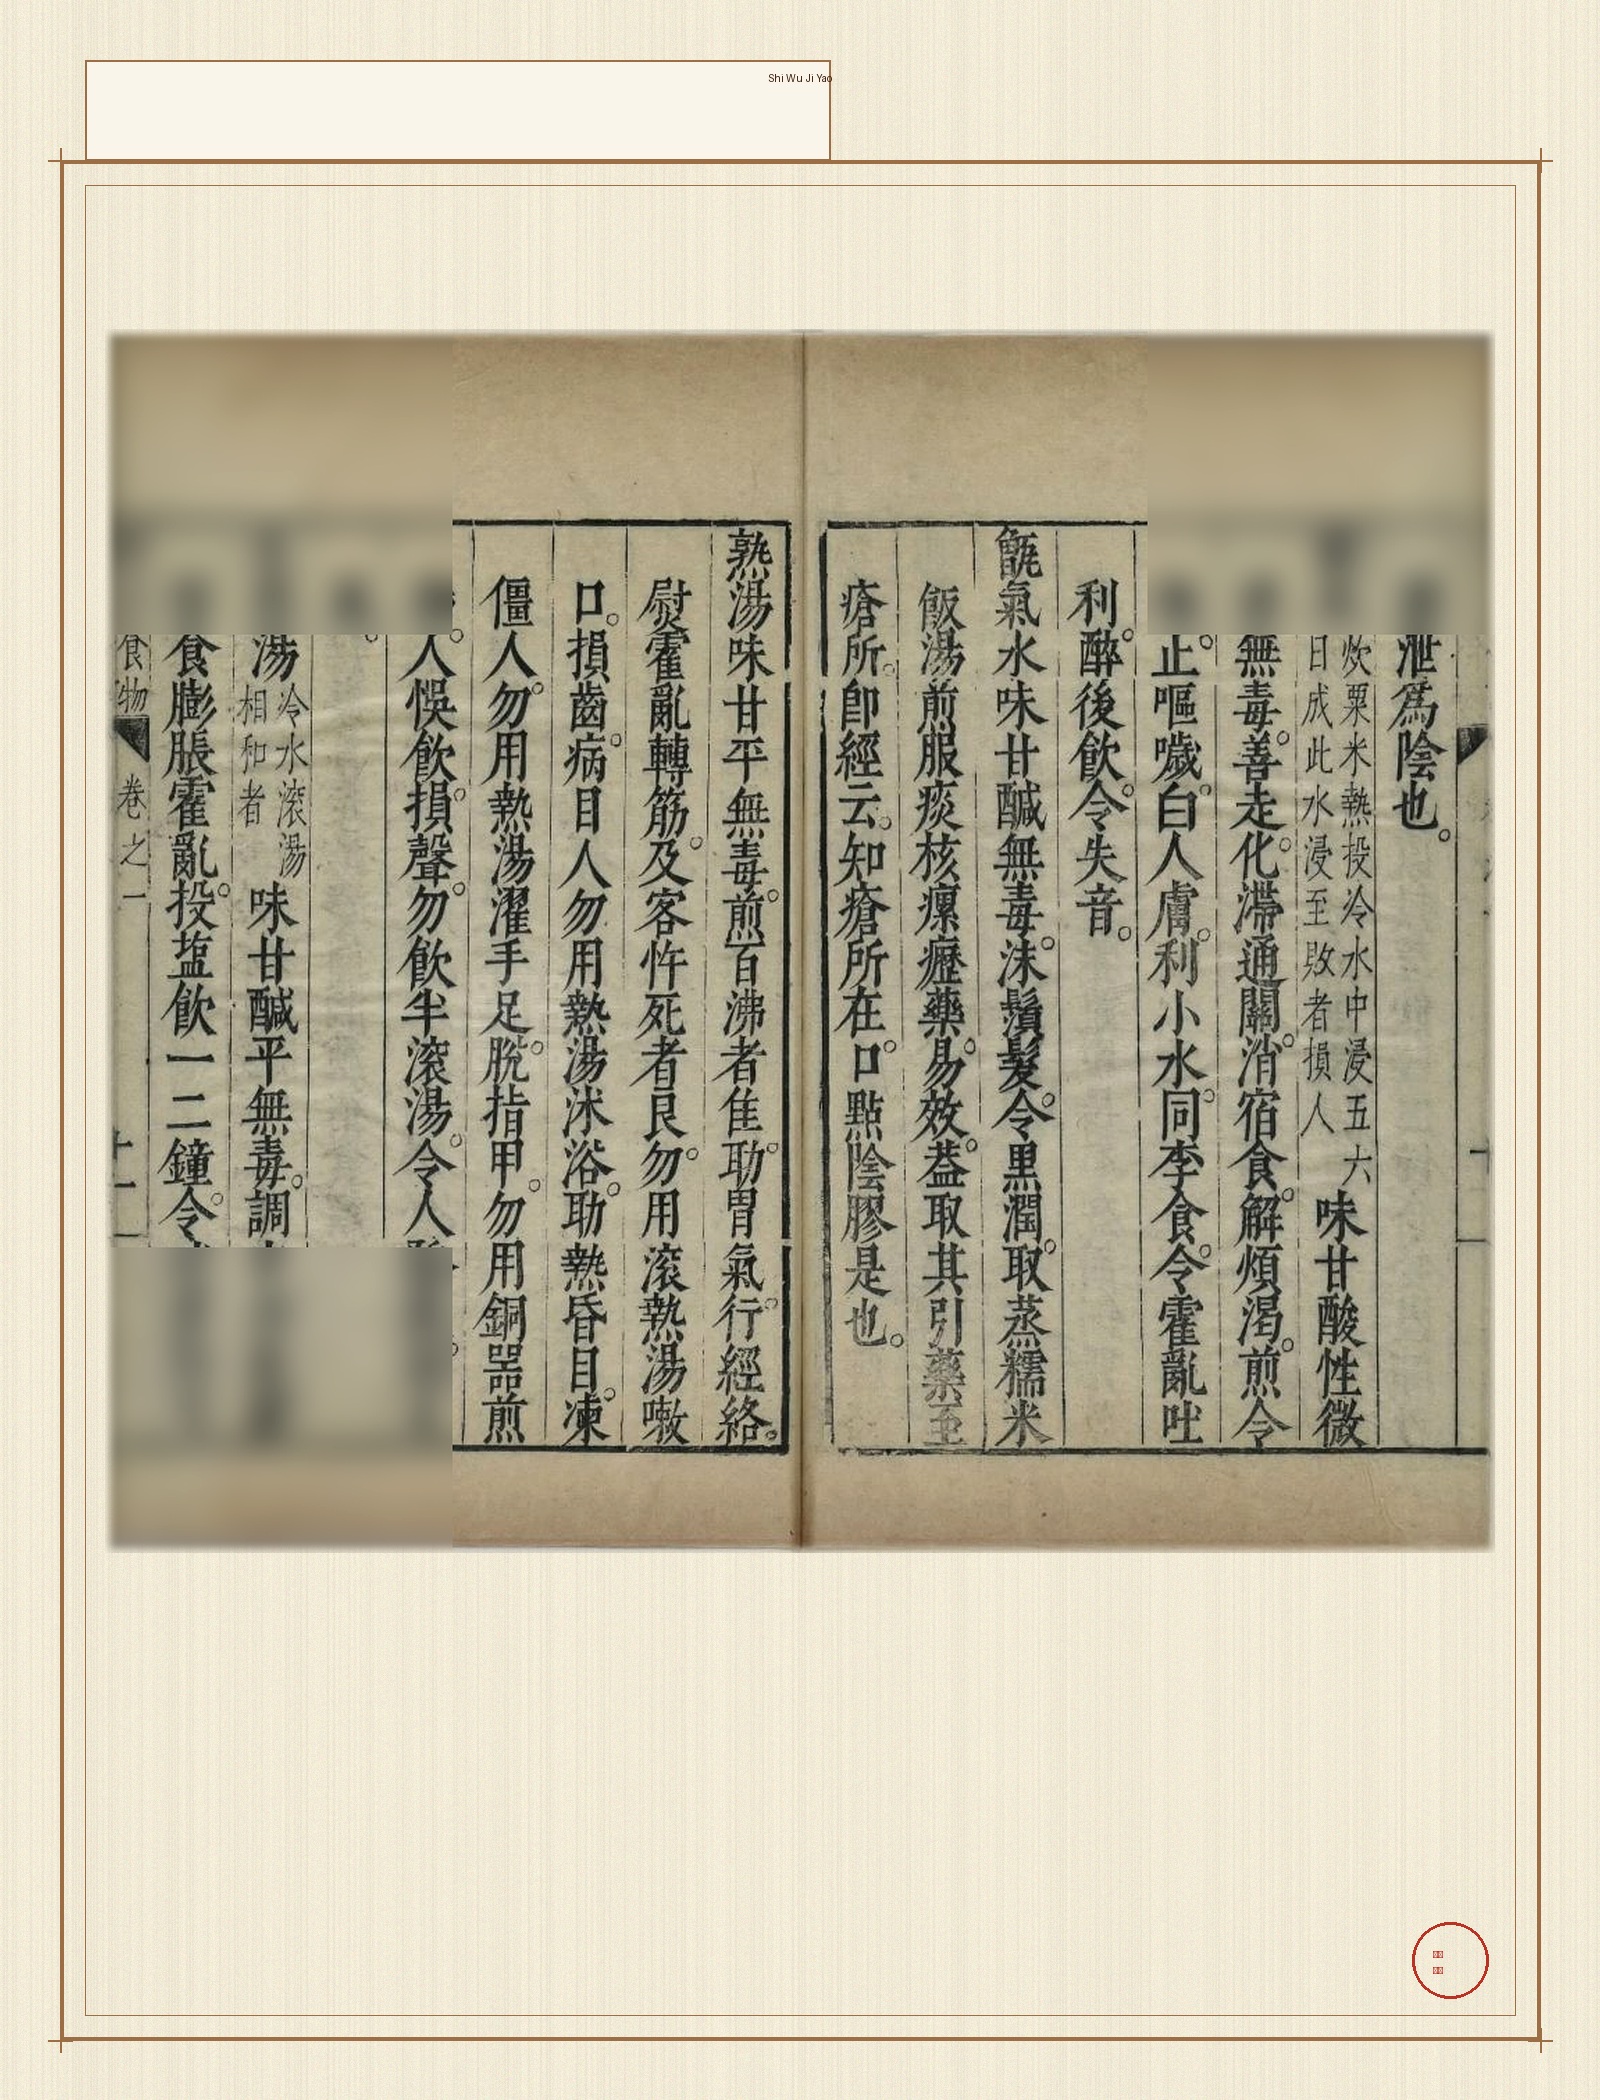 Shi Wu Ji Yao
泄爲陰也。
炊粟米熱投冷水中浸五六
日成此水浸至敗者損人
味甘酸性微
無毒。善走化滯。通關。消宿食。解煩渴。煎令
止。嘔噦。白人膚。利小水。同李食。令霍亂吐
利。醉後飲。令失音。
甑氣水味甘醎無毒。沫鬚髮。令黑潤。取蒸糯米
飯湯煎服痰核瘰癧藥。易效。葢取其引藥至
瘡所。卽經云。知瘡所在。口點陰膠是也。
熟湯味甘平無毒。煎百沸者隹。助胃氣。行經絡。
熨霍亂轉筋。及客忤死者良。勿用滚熱湯嗽
口。損齒。病目人勿用熱湯沐浴。助熱昏目。凍
僵人。勿用熱湯濯手足。脫指甲。勿用銅噐煎
人。悞飲。損聲。勿飲半滚湯。令人
湯
冷水滚湯
相和者
味甘醎平無毒。調
食膨脹霍亂。投塩飲一二鐘。令
食物
卷之一
十一